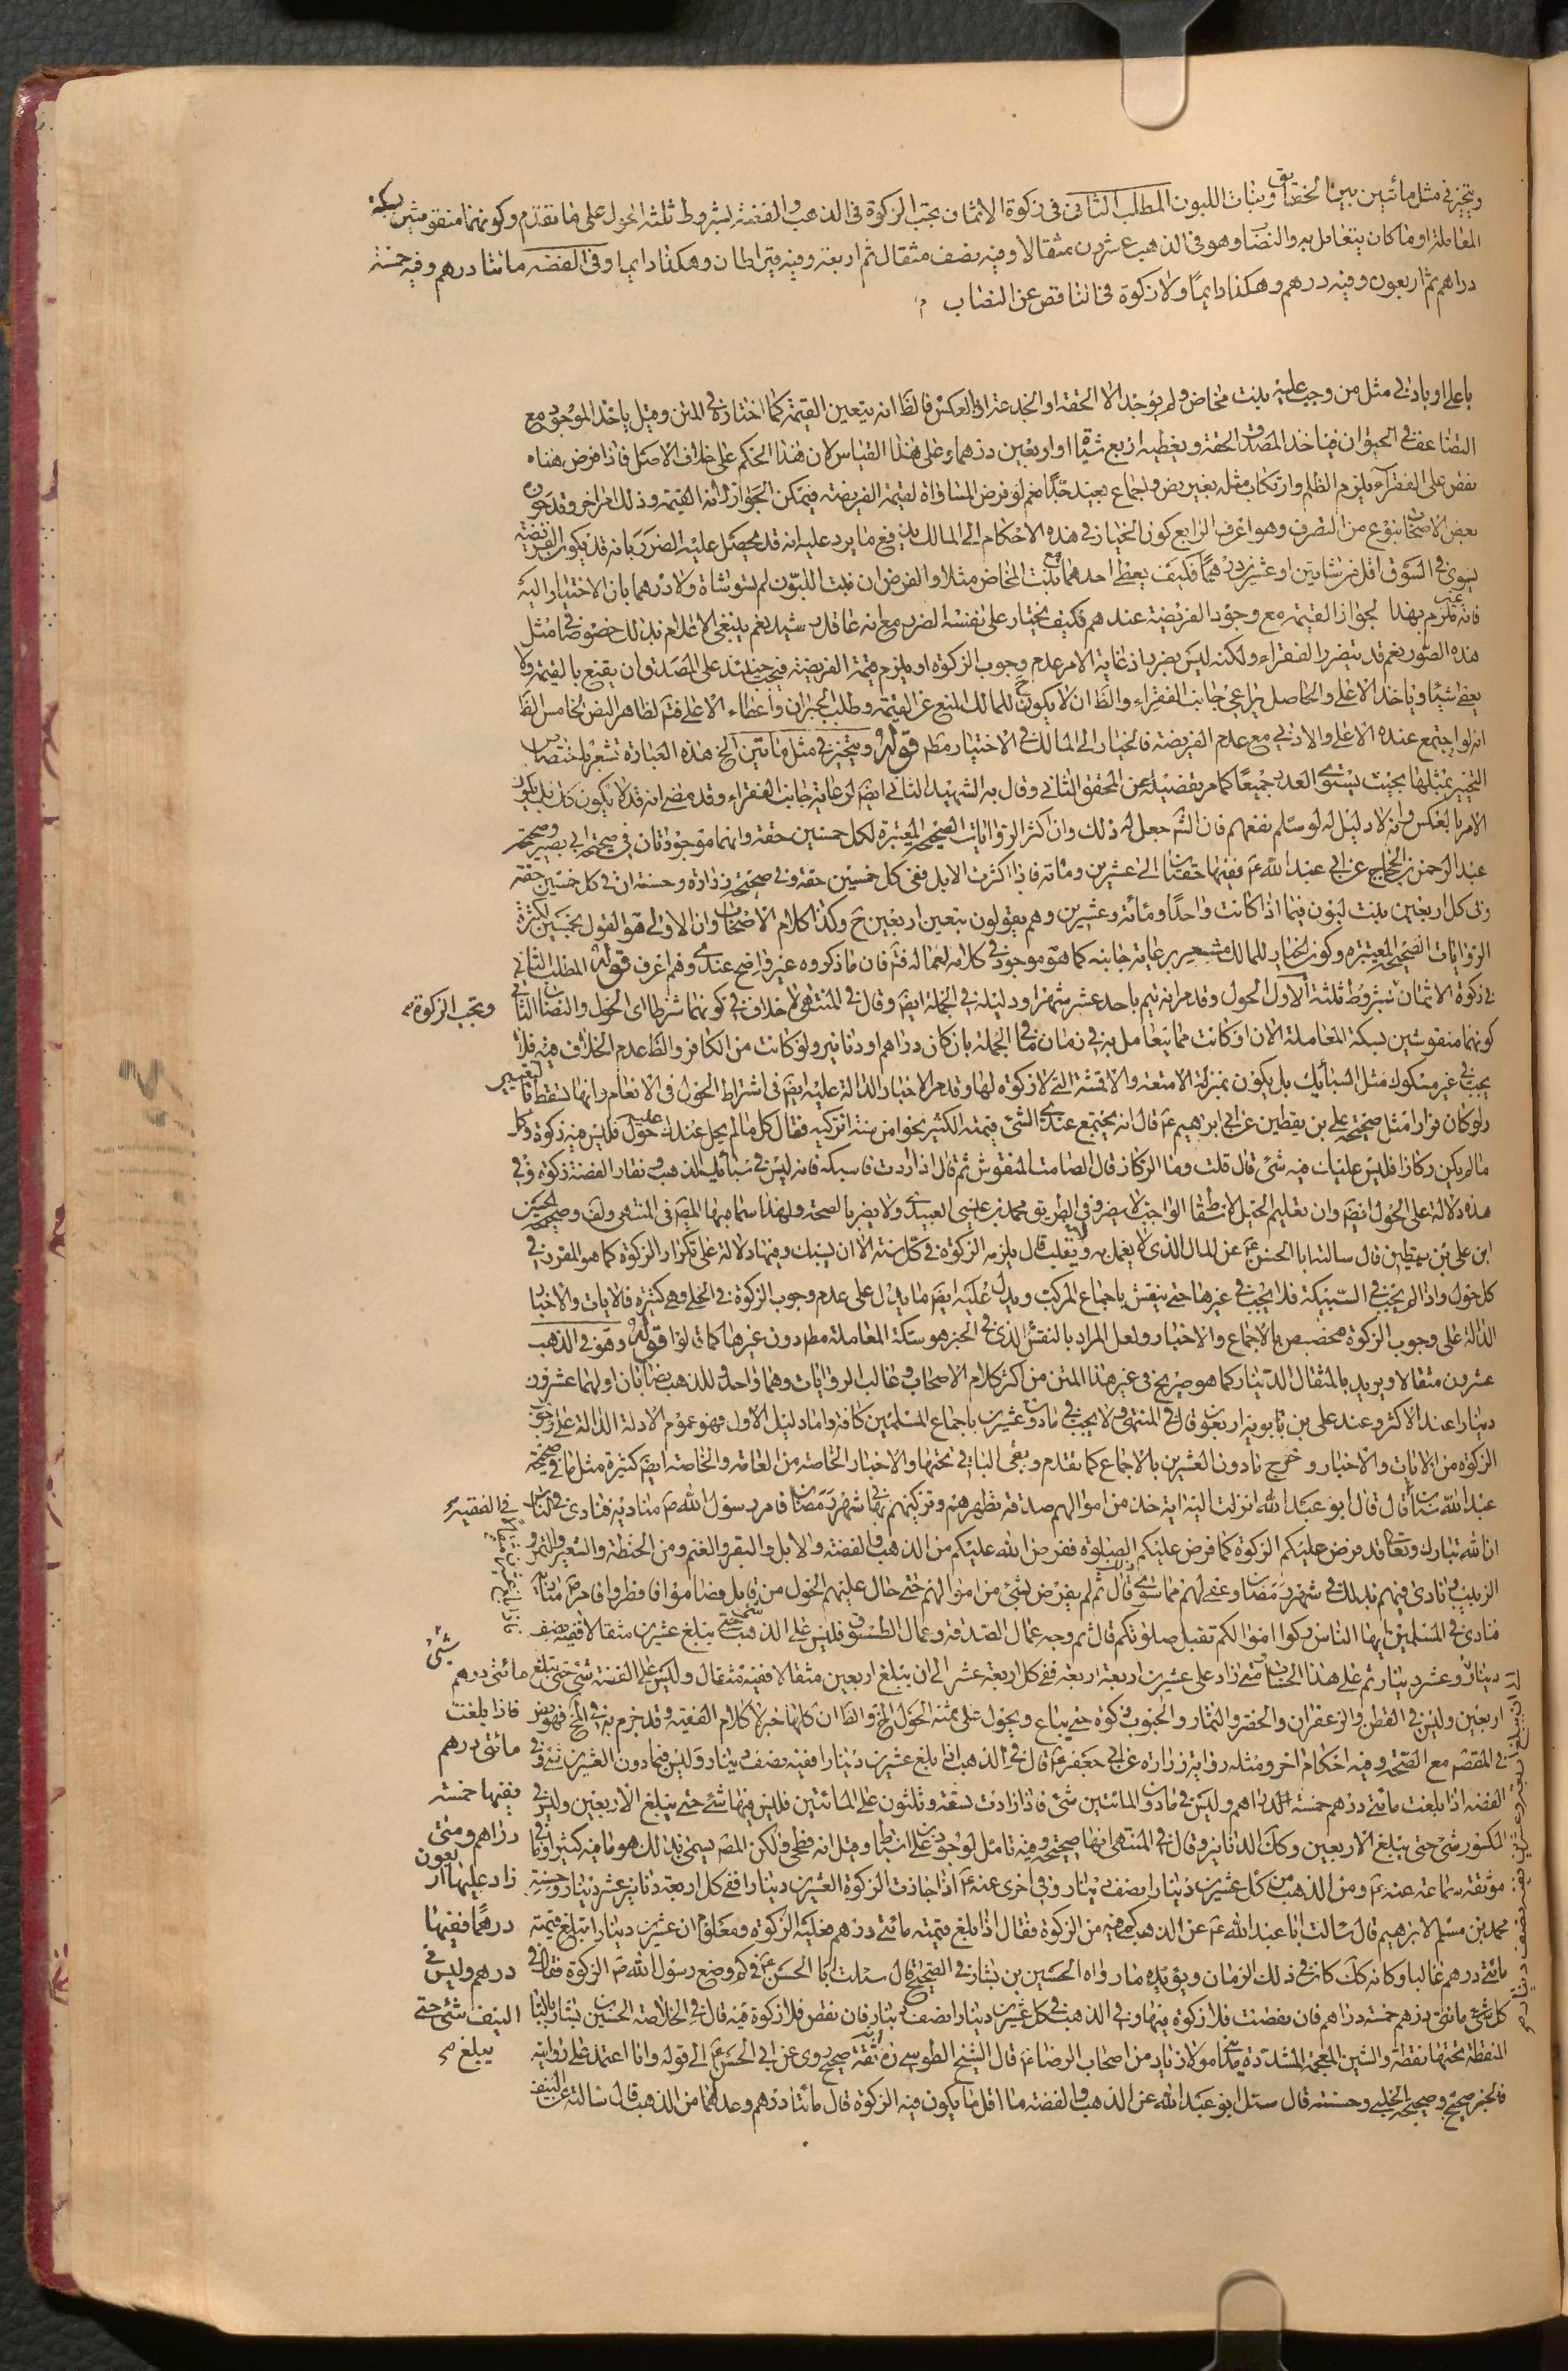 ويتخير في مثل مائتين بين الحقاق وبنات اللبون المطلب الثاني في زكوة الاثمان يجب الزكوة في الذهب والفضة بشروط ثلثة الحول على ما تقدم وكونهما منقوشين بسكة
المعاملة او ما كان يتعامل به والنصاب وهو في الذهب عشرون مثقالا وفيه نصف مثقال ثم اربعة وفيه قيراطان وهكذا دايما وفي الفضة مائتا درهم وفيه خمسة
دراهم ثم اربعون وفيه درهم وهكذا دايما ولا زكوة في الناقص عن النصاب
باعلى او بادنى مثل من وجب عليه بنت مخاض ولم يوجد الا الحقة او الجذعة او العكس فالظ انه يتعين القيمة كما اختاره في المتن وقيل ياخذ الموجود مع
التضاعف في الحيوان فياخذ المصدق الحقة ويعطيه اربع شياة او اربعين درهما وعلى هذا القياس لان هذا الحكم على خلاف الاصل فاذا فرض هناه
نقص على الفقراء يلزم الظلم وارتكاب مثله بغير نص واجماع بعيد جدا نعم لو فرض المساواة لقيمة الفريضة فيمكن الجواز لانه القيمة وذلك امر اخر وقد جوزه
بعض الاصحاب بنوع من التصرف وهو اعرف الرابع كون الخيار في هذه الاحكام الى المالك يدفع ما يرد عليه انه قد يحصل عليه الضرر بانه قد يكون الفريضة
يسوى في السوق اقل من شاتين او عشرين درهما فكيف يعطى احدهما مع بنت المخاض مثلا والفرض ان بنت اللبون لم تسو شاة ولا درهما بان الاختيار اليه
فانه غير ملزم بهذا لجواز القيمة مع وجود الفريضة عندهم فكيف يختار على نفسه الضرر مع انه عاقل رشيد نعم ينبغي الاعلام بذلك خصوصا في مثل
هذه الصور نعم قد يتضرر الفقراء ولكنه ليس بضرر اذ غاية الامر عدم وجوب الزكوة او يلزم قيمة الفريضة فيجب حينئذ على المصدق ان يقنع بالقيمة ولا
يعطى شيئا وياخذ الاعلى والحاصل يراعى جانب الفقراء والظ ان لا يكون ح للمالك المنع عن القيمة وطلب الجبران واعطاء الاعلى فتم لظاهر النص الخامس الظ
انه لو اجتمع عنده الاعلى والادنى مع عدم الفريضة فالخيار الى المالك في الاختيار مط قوله ويتخير في مثل مائتين الخ هذه العبارة تشعر باختصاص
التخيير بمثلها بحيث يستوي العدد جميعا كما مر تفضيله عن المحقق الثاني وقال به الشهيد الثاني ايض لرعاية جانب الفقراء وقد مضى انه قد لا يكون كذلك بل يكون
الامر بالعكس وانه لا دليل له لو سلم نفعهم فان الش جعل له ذلك وان اكثر الروايات الصحيحة المعتبرة لكل خمسين حقة وانهما موجودتان في صحيحة ابي بصير وصحيحة
عبد الرحمن بن الحجاج عن ابي عبد الله ع ففيها حقتان الى عشرين ومائة فاذا كثرت الابل ففي كل خمسين حقة وفي صحيحة زرارة وحسنته ان في كل خمسين حقة
وفي كل اربعين بنت لبون فيما اذا كانت واحدا ومائة وعشرين وهم يقولون بتعين اربعين ح وكذا كلام الاصحاب وان الاولى هو القول بخمسين لكثرة
الروايات الصحيحة المعتبرة وكون الخيار للمالك مشعر برعاية جانبه كما هو موجود في كلامه لعماله فتم فان ما ذكروه غير واضح عندي وهم اعرف قوله المطلب الثاني
في زكوة الاثمان بشروط ثلثة الاول الحول وقد مر انه يتم باحد عشر شهرا ودليله في الجملة ايض وقال في المنتهى لا خلاف في كونهما شرطا اي الحول والنصاب الثاني
وتجب الزكوة
كونهما منقوشين بسكة المعاملة الان او كانت مما يتعامل به في زمان ما في الجملة بان كان دراهم او دنانير ولو كانت من الكافر والظ عدم الخلاف فيه فلا
يجب في غير مسكوك مثل السبائك بل يكون بمنزلة الامتعة والاقمشة التي لا زكوة لها وقد مر الاخبار الدالة عليه ايض في اشتراط الحول في الانعام وانها تسقط بالتغيير
ولو كان فرارا مثل صحيحة علي بن يقطين عن ابي ابرهيم ع قال انه يجتمع عندي الشئ قيمته الكثير نحوا من سنة انزكيه فقال كل مالم يحل عندك عليه حول فليس فيه زكوة وكل
مالم يكن ركازا فليس عليك فيه شئ قال قلت وما الركاز قال الصامت المنقوش ثم قال اذا اردت ذلك فاسبكه فانه ليس في سبائك الذهب ونقار الفضة زكوة وفي
هذه دلالة على الحول ايض وان تعليم الحيل لاسقاط الواجب لا يضر وفي الطريق محمد بن عيسى العبيدي ولا يضر بالصحة ولهذا سماها بها المص في المنتهى ولف وصحيحة الحسين
ابن علي بن يقطين قال سالت ابا الحسن ع عن المال الذي لا يعمل به ولا يقلب قال يلزمه الزكوة في كل سنة الا ان يسبك وفيها دلالة على تكرار الزكوة كما هو المقرر في
كل حول واذا لم يجب في السبيكة فلا يجب في غيرها حتى ينقش باجماع المركب ويدل عليه ايض ما يدل على عدم وجوب الزكوة في الحلي وهي كثيرة فالايات والاخبار
الدالة على وجوب الزكوة مخصص بالاجماع والاخبار ولعل المراد بالنقش الذي في الخبر هو سكة المعاملة مط دون غيرها كما قالوا قوله وهو في الذهب
عشرون مثقالا ويريد بالمثقال الدينار كما هو صريح في غير هذا المتن من اكثر كلام الاصحاب وغالب الروايات وهما واحد وللذهب نصابان اولهما عشرون
دينارا عند الاكثر وعند علي بن بابويه اربعون قال في المنتهى ولا يجب في ما دون عشرين باجماع المسلمين كافة واما دليل الاول فهو عموم الادلة الدالة على وجوب
الزكوة من الايات والاخبار وخرج ما دون العشرين بالاجماع كما تقدم وبقى الباقي تحتها والاخبار الخاصة من العامة والخاصة ايض كثيرة مثل ما في صحيحة
عبد الله بن سنان قال قال ابو عبد الله انزلت اليه اية خذ من اموالهم صدقة تطهرهم وتزكيهم بها في شهر رمضان فامر رسول الله ص مناديه فنادى في الناس
في الفقيه
ان الله تبارك وتعالى قد فرض عليكم الزكوة كما فرض عليكم الصلوة ففرض الله عليكم من الذهب والفضة والابل والبقر والغنم ومن الحنطة والشعير والتمر و
الزبيب ونادى فيهم بذلك في شهر رمضان وعفى لهم عما سوى ذلك قال ثم لم يفرض لشئ من اموالهم حتى حال عليهم الحول من قابل فصاموا وافطروا فامر ص مناديه
فنادى في المسلمين ايها الناس زكوا اموالكم تقبل صلوتكم قال ثم وجه عمال الصدقة وعمال الطسوق فليس على الذهب شئ حتى يبلغ عشرين مثقالا ففيه نصف
دينار وعشر دينار ثم على هذا الحساب متى زاد على عشرين اربعة اربعة ففي كل اربعة عشر الى ان يبلغ اربعين مثقالا ففيه مثقال وليس على الفضة شئ حتى يبلغ مائتي درهم
شئ
فاذا بلغت
مائتي درهم
ففيها خمسة
دراهم ومتى
زاد عليها اربعون
درهما ففيها
درهم وليس في
النيف شئ حتى
يبلغ
اربعين وليس في القطن والزعفران والخضر والثمار والحبوب زكوة حتى يباع ويحول على ثمنه الحول الخ والظ ان كلها خبر لا كلام الفقيه وقد جزم به في الخ فهو نص
في المقصد مع الصحة وفيه احكام اخر ومثله رواية زرارة عن ابي جعفر ع قال في الذهب اذا بلغ عشرين دينارا ففيه نصف دينار وليس فيما دون العشرين شئ وفي
الفضة اذا بلغت مائتي درهم خمسة الدراهم وليس في ما دون المائتين شئ فاذا زادت تسعة وثلثون على المائتين فليس فيها شئ حتى يبلغ الاربعين وليس في
الكسور شئ حتى يبلغ الاربعين وكك الدنانير وقال في المنتهى انها صحيحة وفيه تامل لوجود علي بن اسباط وقيل انه فطحي ولكن المص يسمي بذلك هو ما فيه كثير وكما في
موثقة سماعة عنه ع ومن الذهب من كل عشرين دينارا نصف دينار وفي اخرى عنه ع اذا جازت الزكوة العشرين دينارا ففي كل اربعة دنانير عشر دينار وحسنة
محمد بن مسلم لابرهيم قال سالت ابا عبد الله ع عن الذهب كم فيه من الزكوة فقال اذا بلغ قيمته مائتي درهم فعليه الزكوة ومعلوم ان عشرين دينارا تبلغ قيمته
مائتي درهم غالبا وكانه كك كان في ذلك الزمان ويؤيده ما رواه الحسين بن بشار في الصحيح قال سئلت ابا الحسن ع في كم وضع رسول الله ص الزكوة فقال في
كل شئ مائتي درهم خمسة دراهم فان نقصت فلا زكوة فيها وفي الذهب في كل عشرين دينارا نصف دينار فان نقص فلا زكوة فيه قال في الخلاصة الحسين بن بشار بالبا
المنقطة تحتها نقطة والشين المعجمة المشددة مدائني مولى زياد من اصحاب الرضا ع قال الشيخ الطوسي ره انه ثقة صحيح روى عن ابي الحسن ع الى قوله وانا اعتمد على روايته
فالخبر صحيح وصحيحة الحلبي وحسنته قال سئل ابو عبد الله عن الذهب والفضة ما اقل ما يكون فيه الزكوة قال مائتا درهم وعدلهما من الذهب قال سالته عن النيف